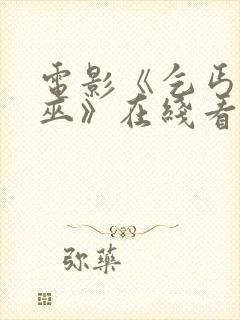 電影《乞丐
巫》在綫看
弥藥